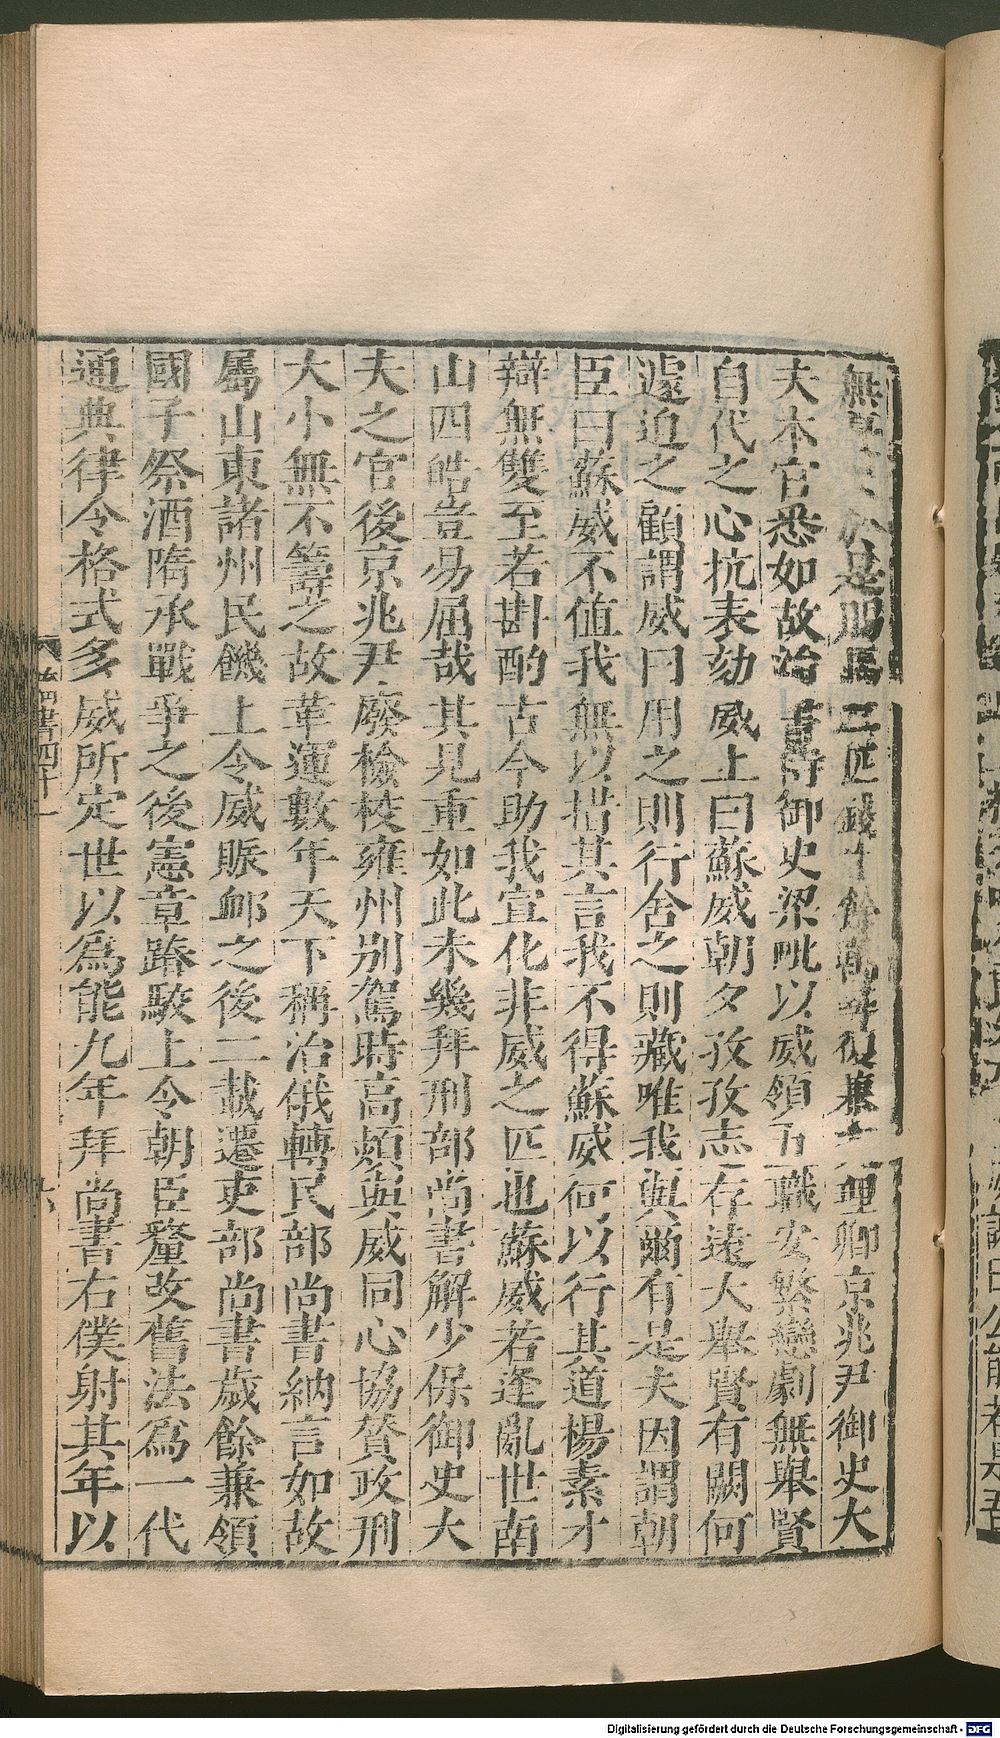 無憂矣於是賜馬二匹錢十餘萬尋復兼大理卿京兆尹御史大
夫本官悉如故治書侍御史梁毗以威領五職安繁戀劇無舉賢
自代之心抗表劾威上曰蘇威朝夕孜孜志存遠大舉賢有闕何
遽迫之顧謂威曰用之則行舍之則藏唯我與爾有是夫因謂朝
臣曰蘇威不值我無以措其言我不得蘇威何以行其道楊素才
辯無雙至若斟酌古今助我宣化非威之匹也蘇威若逢亂世南
山四皓豈易屈哉其見重如此未幾拜刑部尚書解少保御史大
夫之官後京兆尹廢檢校雍州別駕時高熲與威同心協贊政刑
大小無不籌之故革運數年天下稱治俄轉民部尚書納言如故
屬山東諸州民饑上令威賑卹之後二載遷吏部尚書歲餘兼領
國子祭酒隋承戰爭之後憲章踳駮上令朝臣釐改舊法爲一代
通典律令格式多威所定世以爲能九年拜尚書右僕射其年以
隋書四十一
六
Digitalisierung gefördert durch die Deutsche Forschungsgemeinschaft - DFG